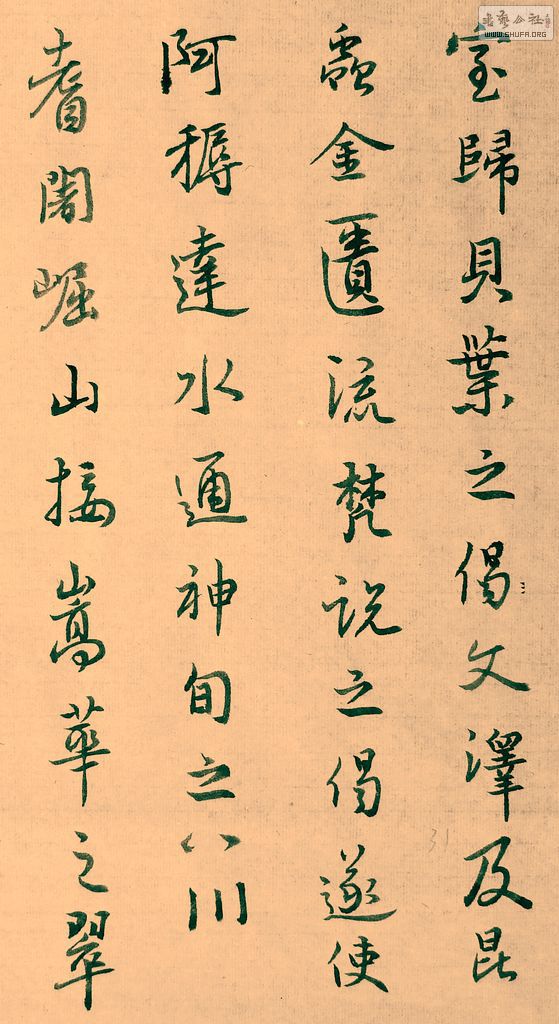 書藝公社
WWW.SHUFA.ORG
室歸貝葉之偈文澤及昆
蟲金匱流梵說之偈遂使
阿耨達水通神旬之八川
耆闍崛山接嵩華之翠
31